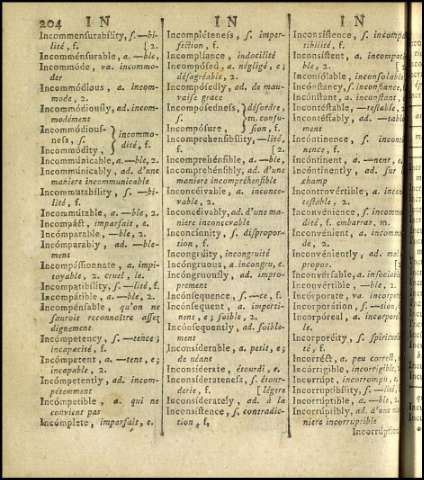 204 IN
IN
IN
Incommensurability, s. —bi-
lité, f. [2.
Incomménsurable, a. —ble,
Incommóde, va. incommo-
der
Incommódious, a. incom-
mode, 2.
Incommódiously, ad. incom-
modément
Incommódious-
ness, s.
Incommódity,
} incommo-
dité, f.
Incommúnicable, a. —ble, 2.
Incommúnicably, ad. d'une
maniere incommunicable
Incommutability, s. —bi-
lité, f.
Incommútable, a. —ble, 2.
Incompáct, imparfait, e.
Incómparable, —ble, 2.
Incómparably, ad. —ble-
ment
Incompássionnate, a. impi-
toyable, 2. cruel, le.
Incompatibility, s. —lité, f.
Incompátible, a. —ble, 2.
Incompénsable, qu'on ne
sauroit reconnoître assez
dignement
Incómpetency, s. —tence;
incapacité, f.
Incómpetent, a. —tent, e;
incapable, 2.
Incómpetently, ad. incom-
pétemment
Incómpetible, a. qui ne
convient pas
Incompléte, imparfait, e.
Incompléteness, s. imper-
fection, f.
Incompliance, indocilité
Incompósed, a. négligé, e;
désagréable, 2.
Incompósedly, ad. de mau-
vaise grace
Incompósedness,
s.
Incompósure,
} désordre,
m. confu-
sion, f.
Incomprehensibility, —lité,
f. [2.
Incomprehénsible, a. —ble,
Incomprehénsibly, ad. d'une
maniere incompréhensible
Inconceivable, a. inconce-
vable, 2.
Inconceivably, ad. d'une ma-
niere inconcevable
Inconcínnity, s. dispropor-
tion, f.
Incongrúity, incongruité
Incóngruous, a. incongru, e.
Incóngruously, ad. impro-
prement
Incónsequence, s. —ce, f.
Incónsequent, a. imperti-
nent, e; foible, 2.
Incónsequently, ad. foible-
ment
Inconsíderable, a. petit, e;
de néant
Inconsíderate, étourdi, e.
Inconsíderateness, s. étour-
derie, f. [légere
Inconsíderately, ad. à la
Inconsístence, s. contradic-
tion, f,
Inconsístence, s. incompa
tibilité, f.
Inconsístent, a. incompat
ble, 2.
Inconsólable, inconsolable
Incónstancy, s. inconstance,
Incónstant, a. inconstant,
Incontéstable, —testable, 2.
Incontéstably, ad. —table
ment
Incóntinence, s. inconti
nence, f.
Incóntinent, a. —nent, e
Incóntinently, ad. sur
champ
Incontrovértible, a. incon
testable, 2.
Inconvénience, s. incommo
dité, f. embarras, m.
Inconvénient, a. incommo
de, 2.
Inconvéniently, ad. mal
propos.
Inconvérsable, a. insociable
Inconvértible, —ble, 2.
Incórporate, va. incorpor
Incorporátion, s. —tion,
Incorpóreal, a. incorpor
le.
Incorporéity, s. spiritua
té, f.
Incorréct, a. peu correct,
Incórrigible, incorrigible, 2
Incorrúpt, incorrompu, e.
Incorruptibility, s. —lité,
Incorrúptible, a. —ble, 2
Incorrúptibly, ad. d'une ma
niere incorruptible
Incorrúption